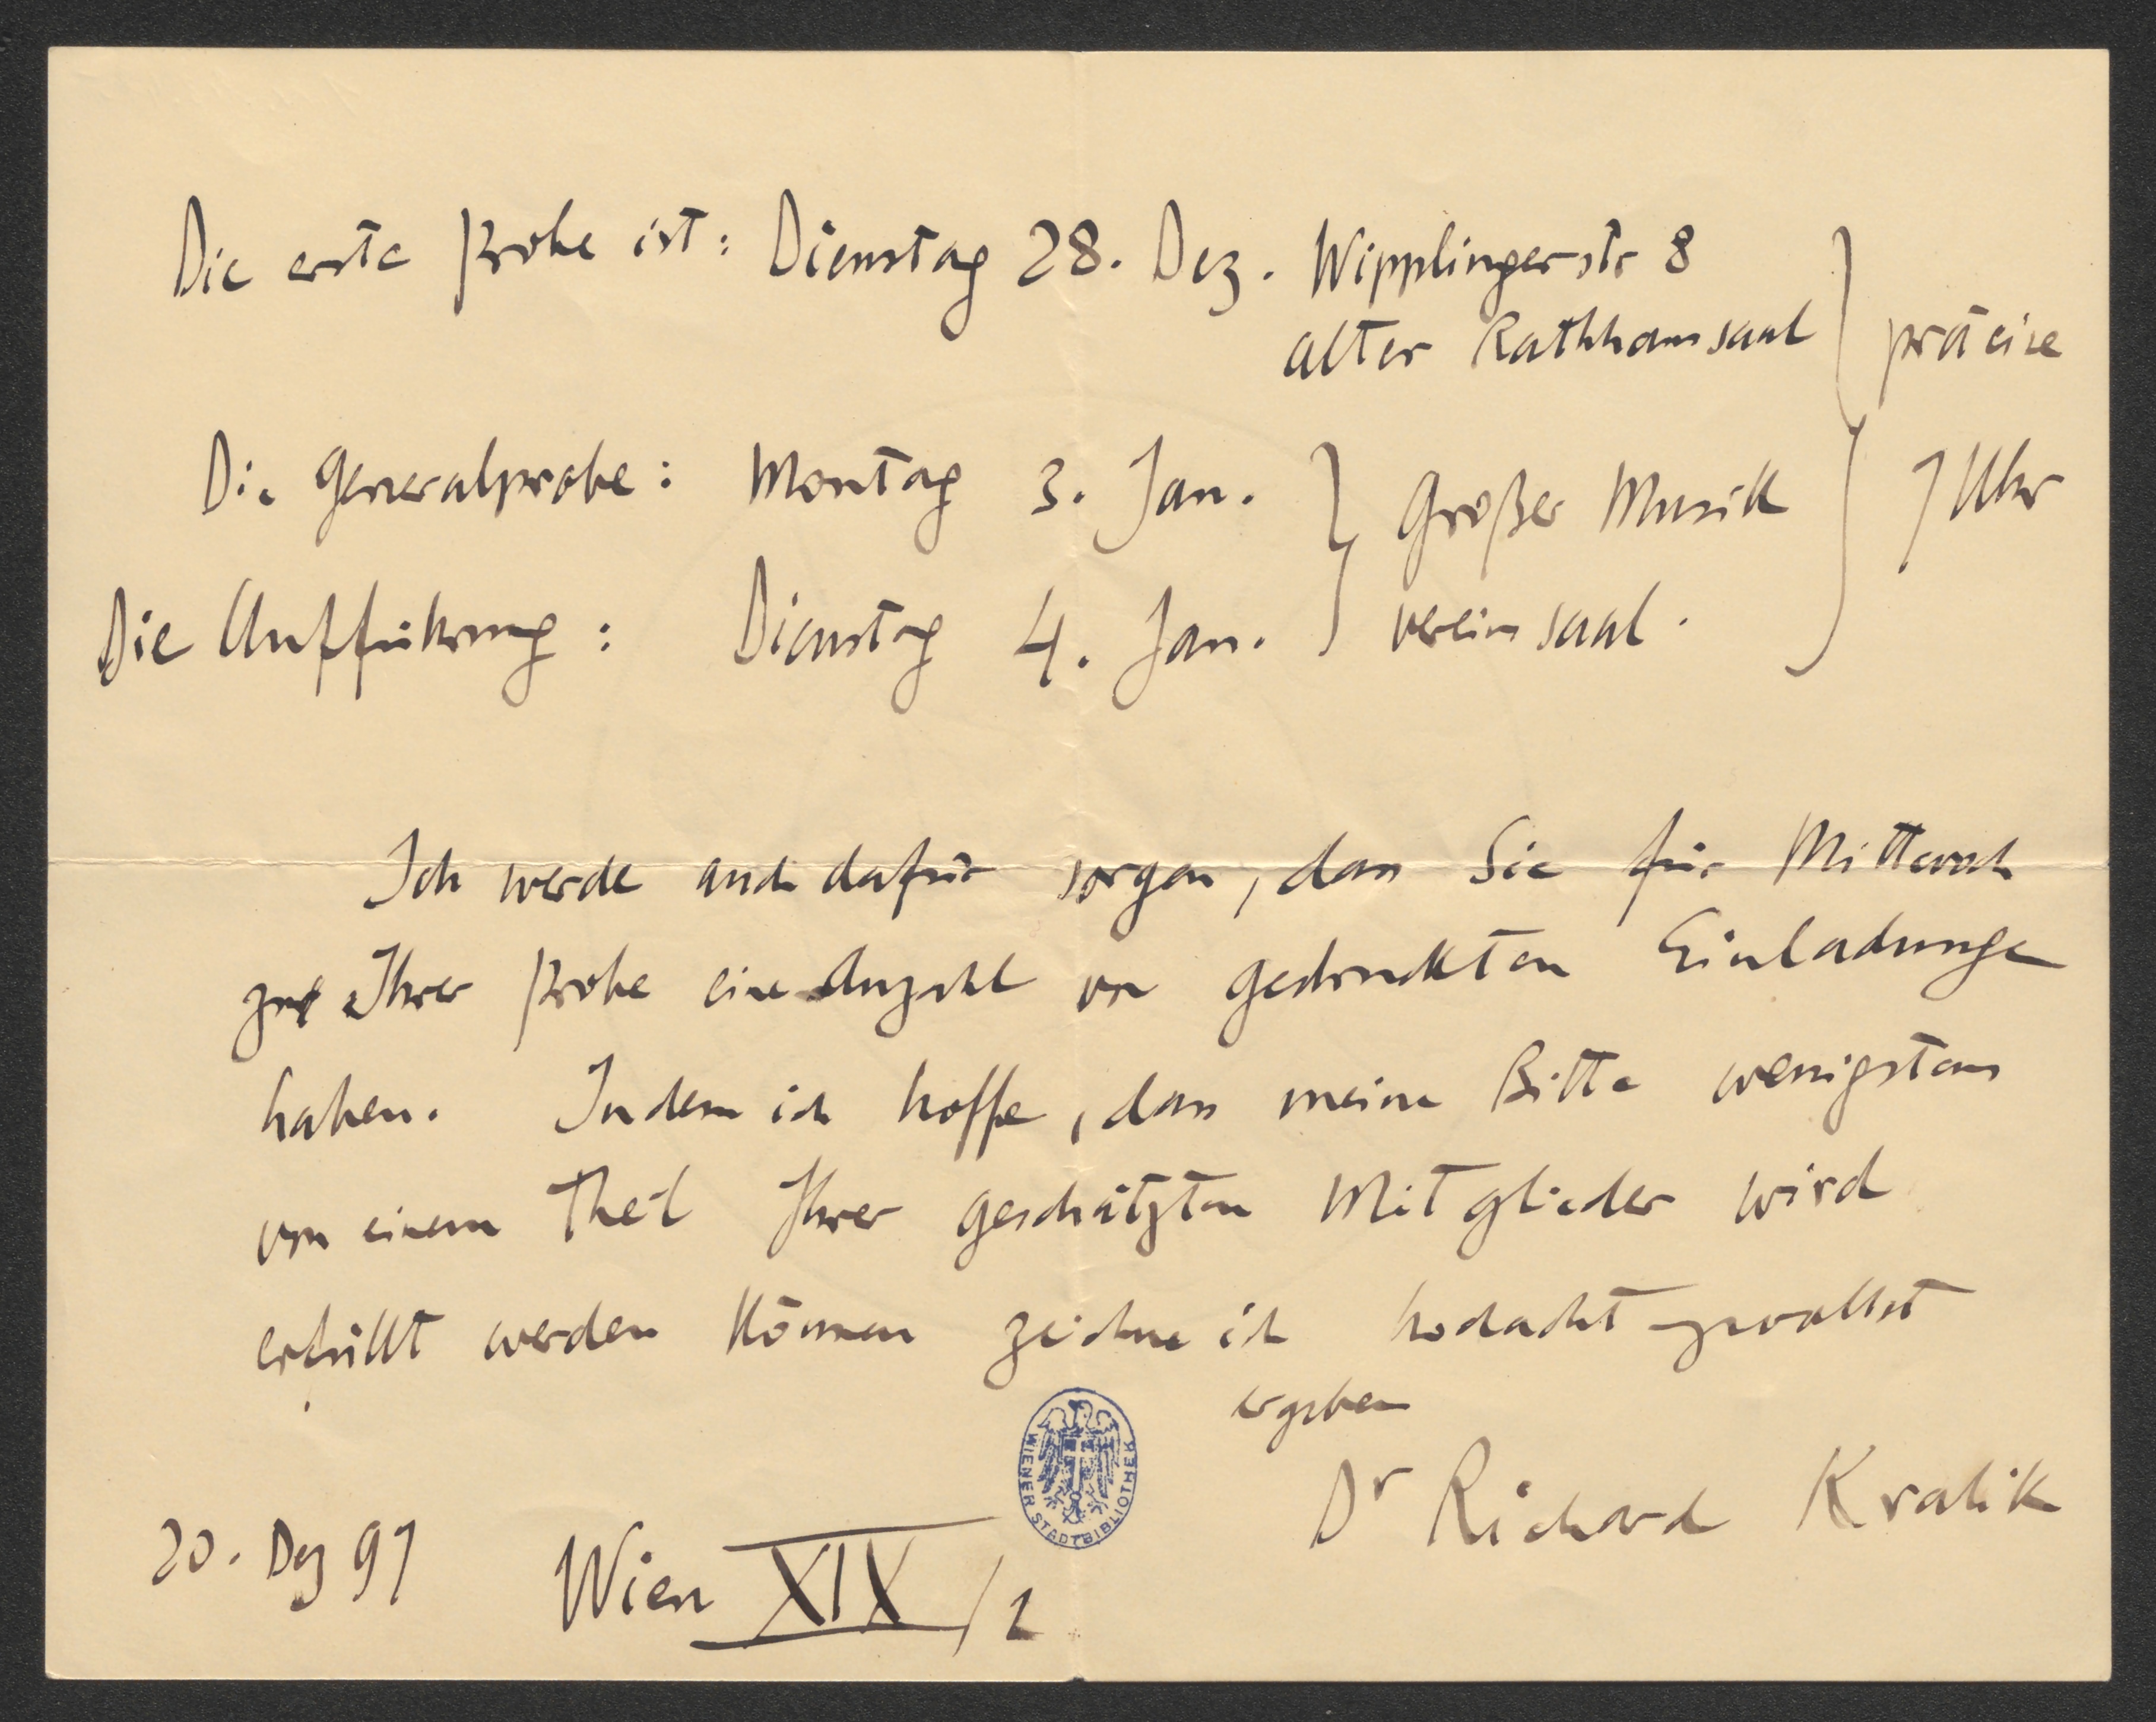 Die erste Probe ist: Dienstag 28. Dez. Wipplingerstr 8
alter Rathhaussaal
präcise
Die Generalprobe: Montag 3. Jan.
Großer Musik
7 Uhr
Die Aufführung: Dienstag 4. Jan.
vereinssaal.
Ich werde auch dafür sorgen, dass Sie für Mittwoch
zu Ihrer Probe eine Anzahl von gedruckten Einladungen
haben. Indem ich hoffe, dass meine Bitte wenigstens
von einem Theil Ihrer geschätzten Mitglieder wird
erfüllt werden können zeichne ich hochachtungsvollst
ergeben
Dr Richard Kralik
20. Dez 97 Wien XIX/2
WIENER STADTBIBLIOTHEK